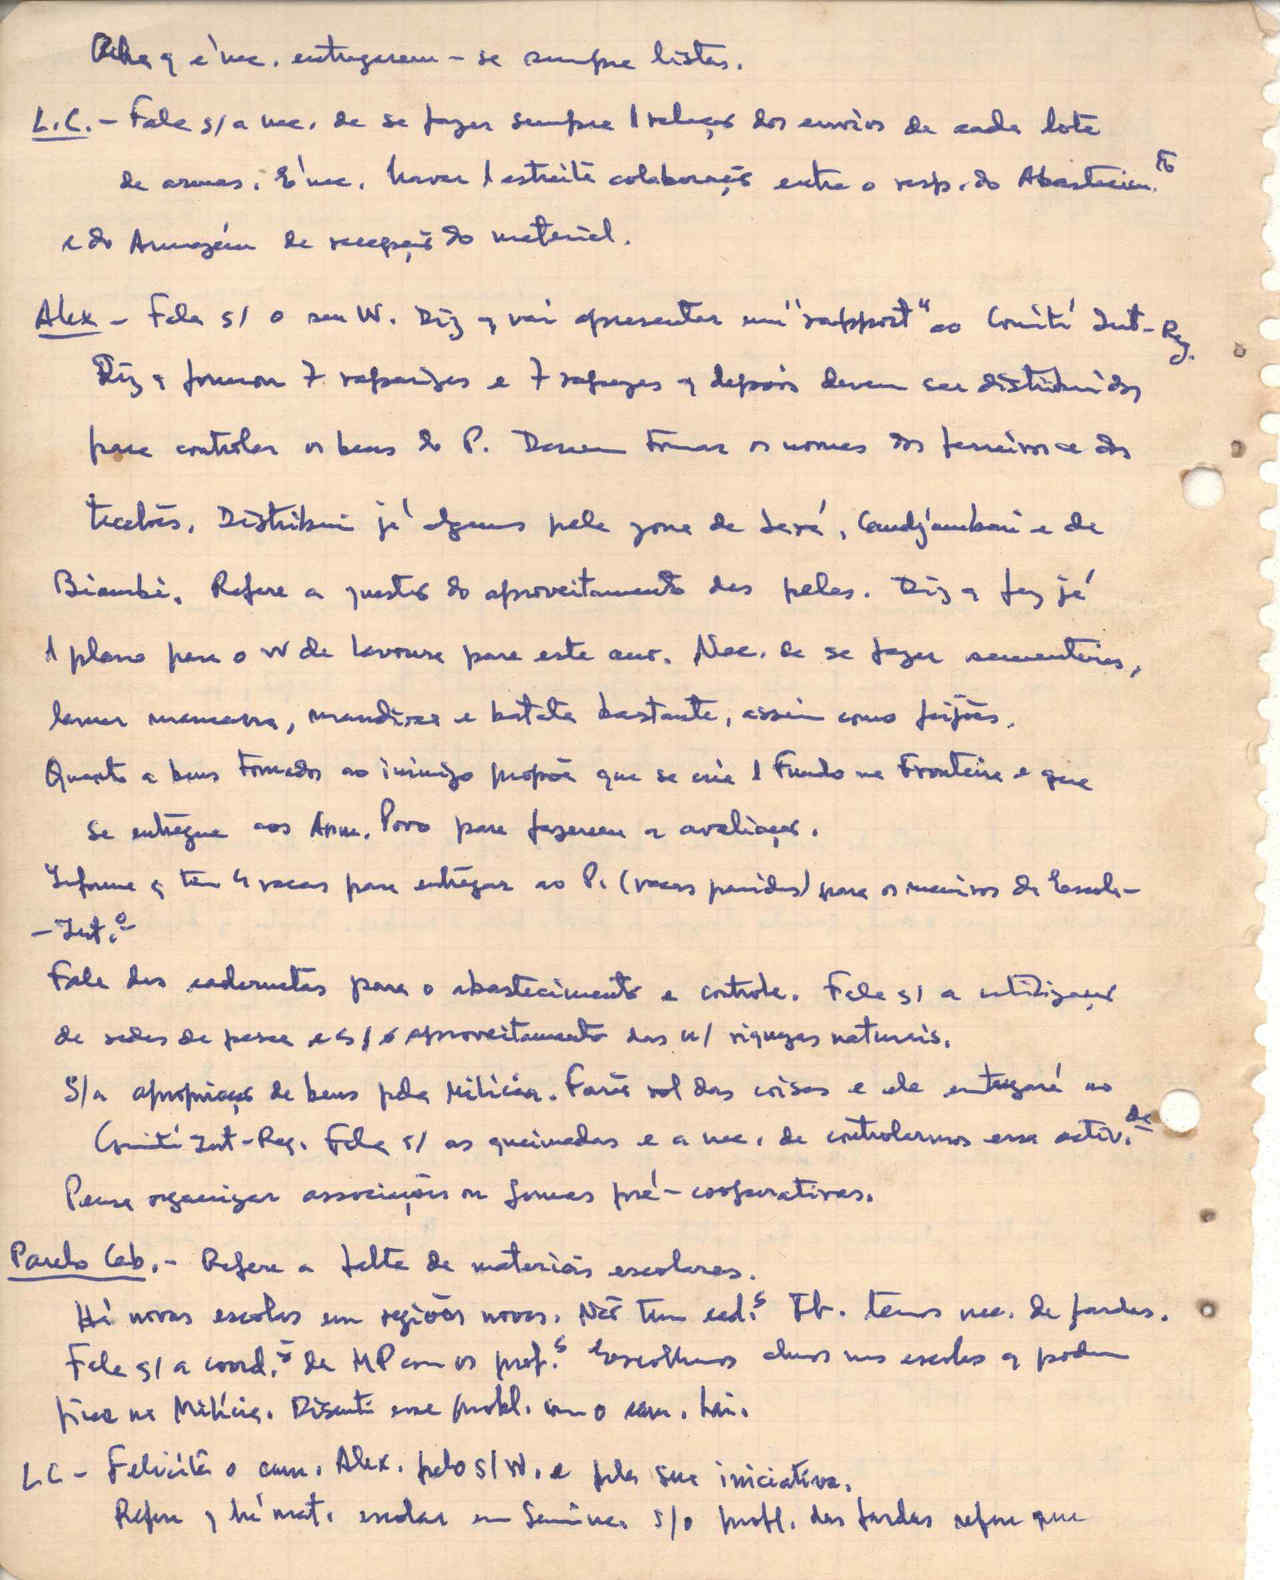 Acha q é nec. entregarem-se sempre listas.
L.C. - Fala s/ a nec. de se fazer sempre 1 relação dos envios de cada lote
de armas. É nec. haver 1 estreita colaboração entre o resp. do Abastecim.to
e do Armazém de recepção do material.
Alex - Fala s/ o seu W. Diz q vai apresentar um "rapport" ao Comité Int-Reg.
Diz q formou 7 raparigas e 7 rapazes q depois devem ser distribuidos
para controlar os bens do P. Devem tomar os nomes dos ferreiros e dos
tecelões. Distribuiu já alguns pela zona de Sará, Candjambari e de
Biambi. Refere a questão do aproveitamento das peles. Diz q fez já
1 plano para o W de lavoura para este ano. Nec. de se fazer sementeiras,
lavrar mancarra, mandioca e batata bastante, assim como feijões.
Quanto a bens tomados ao inimigo propõe que se crie 1 Fundo na Fronteira e que
se entregue aos Arm. Povo para fazerem a avaliação.
Informa q tem 4 vacas para entregar ao P. (vacas paridas) para os meninos da Escola-
-Int.o
Fala das cadernetas para o abastecimento e controle. Fala s/ a utilização
de redes de pesca e s/ o aproveitamento das n/ riquezas naturais.
S/ a apropriação de bens pela Milícia. Fará rol das coisas e ele entregará ao
Comité Int-Reg. Fala s/ as queimadas e a nec. de controlarmos essa activ.de
Pensa organizar associações ou formas pré-cooperativas.
Paulo Cab. - Refere a falta de materiais escolares.
Há novas escolas em regiões novas. Não tem cad.s Tb. temos nec. de fardas.
Fala s/ a coord.ão da MP com os prof.s Escolhemos alunos nas escolas q podem
ficar na Milícia. Discuti esse probl. com o cam. Lai.
L.C - Felicita o cam. Alex. pelo s/ W. e pela sua iniciativa.
Refere q há mat. escolar em S/o probl. das fardas refere que